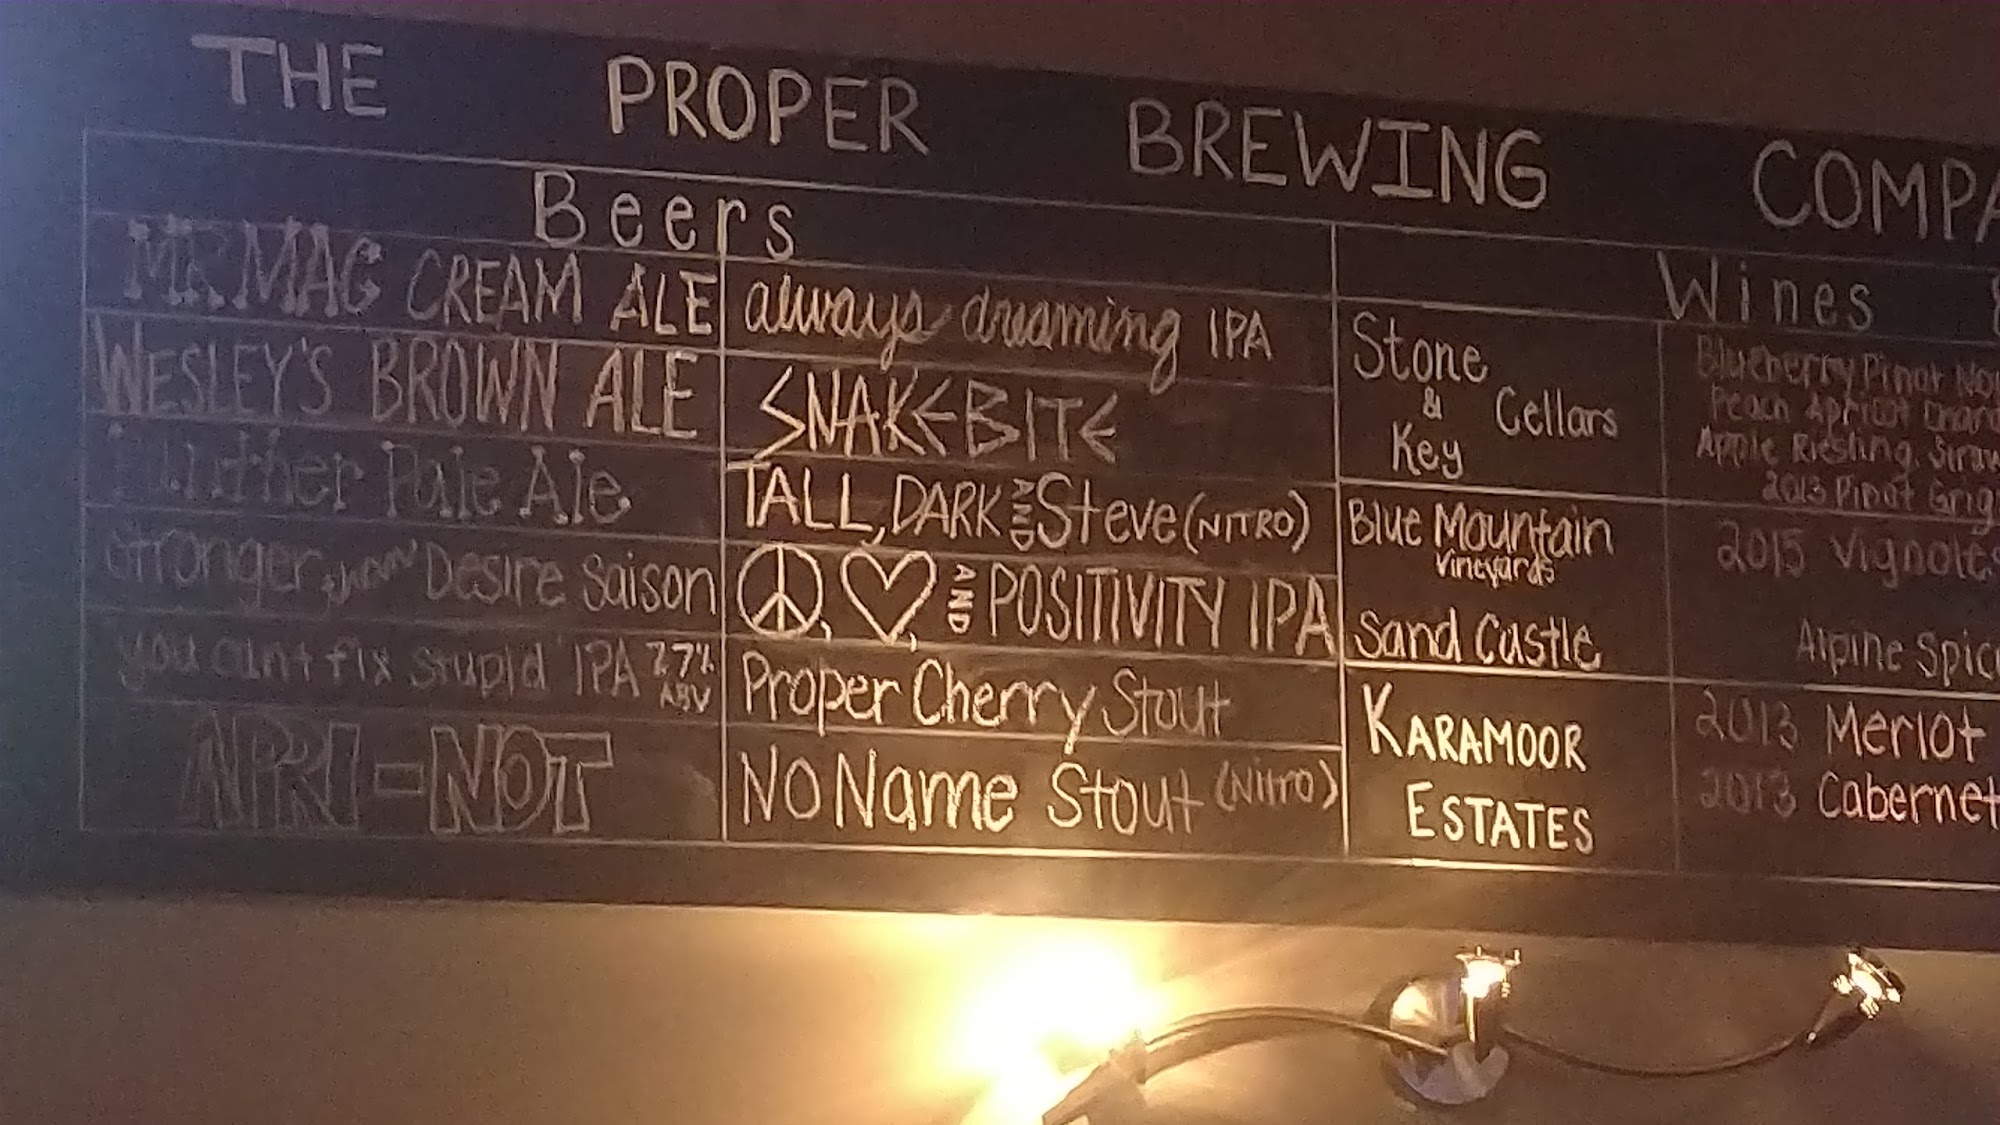 THE PROPER BREWING COMPA
Beers
MR MAG CREAM ALE
WESLEY'S BROWN ALE
Pale Ale
Stronger than Desire Saison
you cant fix stupid IPA 7.7% ABV
APRI-NOT
always dreaming IPA
SNAKEBITE
TALL, DARK AND Steve (NITRO)
☮, ♡, AND POSITIVITY IPA
Proper Cherry Stout
NO Name Stout (Nitro)
Wines &
Stone & Key Cellars
Blueberry Pinot No
Peach Apricot Chard
Apple Riesling, Straw
2013 Pinot Grig
Blue Mountain Vineyards
2015 Vignoles
Sand Castle
Alpine Spic
KARAMOOR ESTATES
2013 Merlot
2013 Cabernet